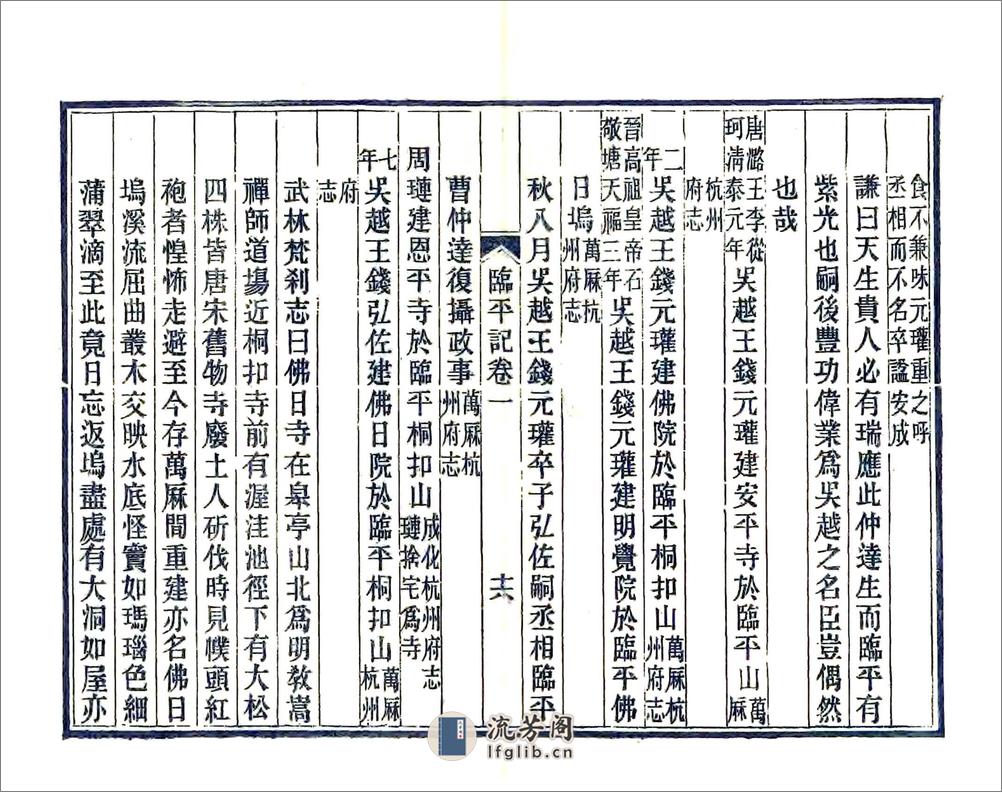 食不兼味元瓘重之呼
丞相而不名卒謚安成
謙曰天生貴人必有瑞應此仲達生而臨平有
紫光也嗣後豐功偉業爲吳越之名臣豈偶然
也哉
唐潞王李從
珂淸泰元年
吳越王錢元瓘建安平寺於臨平山
萬厤
杭州
府志
二
年
吳越王錢元瓘建佛院於臨平桐扣山
萬厤杭
州府志
晉高祖皇帝石
敬塘天福三年
吳越王錢元瓘建明覺院於臨平佛
日塢
萬厤杭
州府志
秋八月吳越王錢元瓘卒子弘佐嗣丞相臨平
臨平記卷一
十六
曹仲達復攝政事
萬厤杭
州府志
周璉建恩平寺於臨平桐扣山
成化杭州府志
璉捨宅爲寺
七
年
吳越王錢弘佐建佛日院於臨平桐扣山
萬厤
杭州
府
志
武林梵刹志曰佛日寺在皋亭山北爲明敎嵩
禪師道場近桐扣寺前有渥洼池徑下有大松
四株皆唐宋舊物寺廢土人斫伐時見幞頭紅
袍者惶怖走避至今存萬厤間重建亦名佛日
塢溪流屈曲叢木交映水底怪竇如瑪瑙色細
蒲翠滴至此竟日忘返塢盡處有大洞如屋亦
流芳阁
lfglib.cn